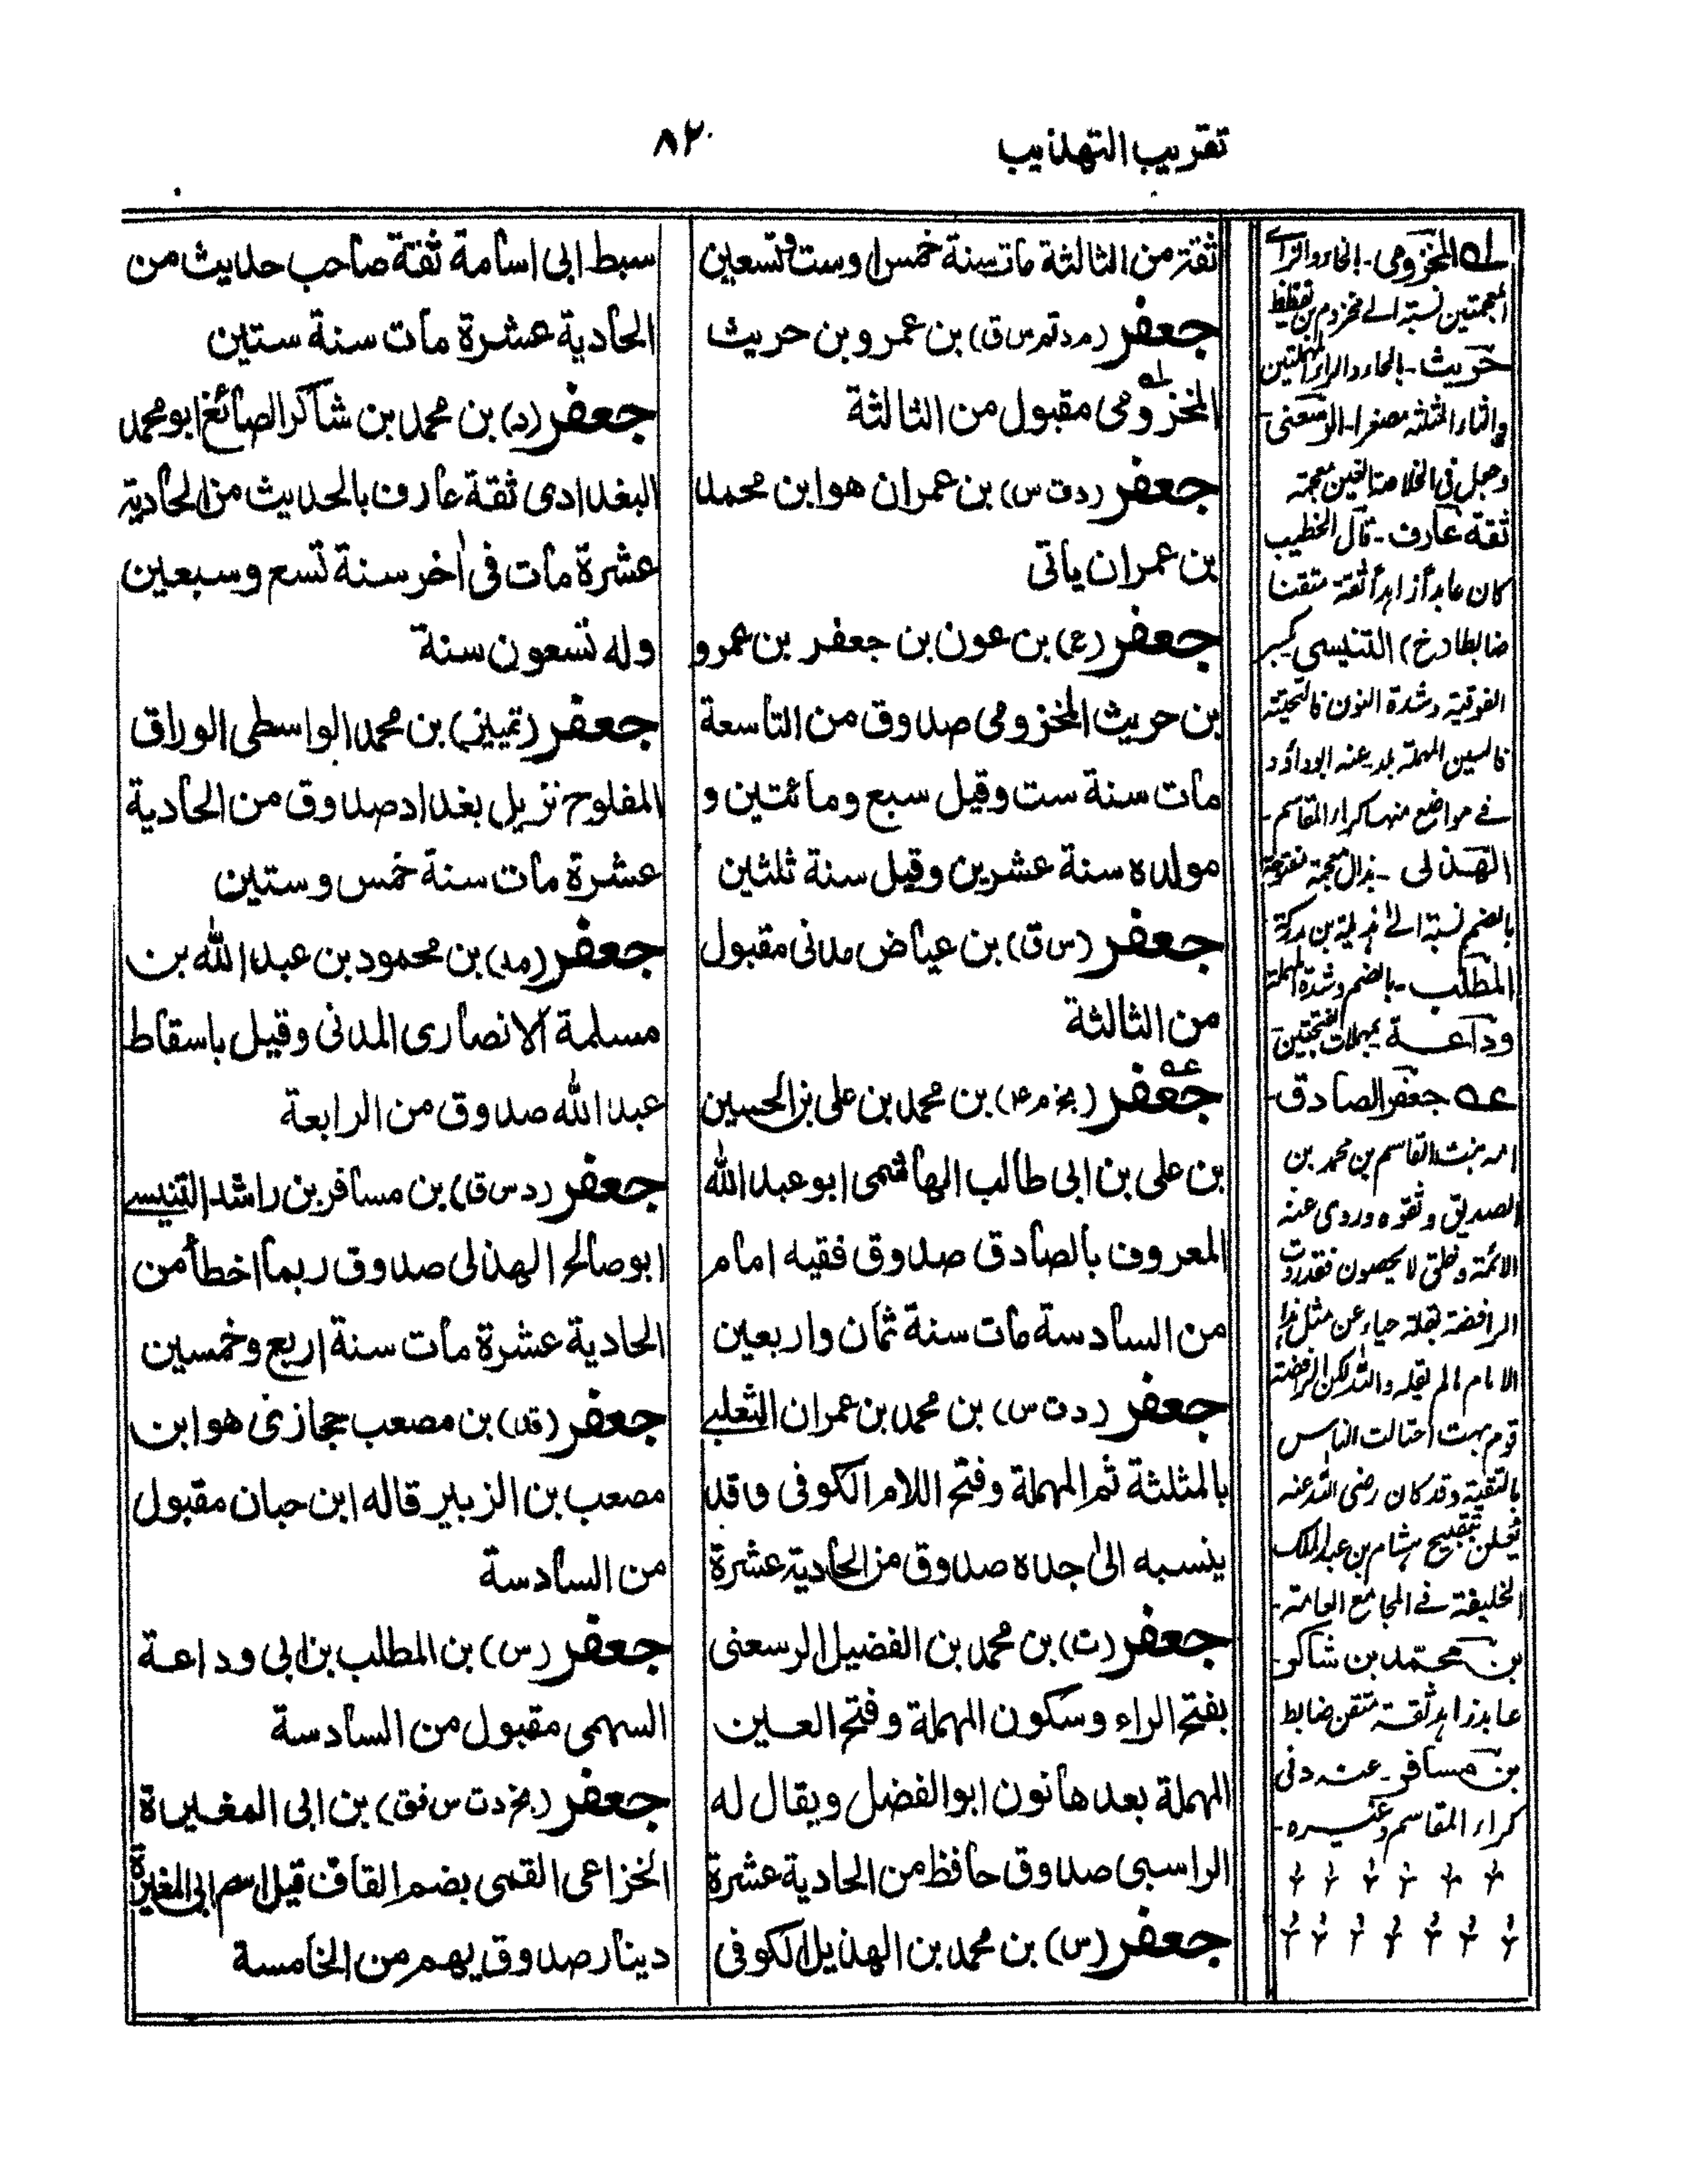 تقريب التهذيب
٨٢
ثقة من الثالثة مات سنة خمس او ست وتسعين
جعفر (مد تم س ق) بن عمرو بن حريث
المخزومى مقبول من الثالثة
جعفر (د ت س) بن عمران هو ابن محمد
بن عمران ياتى
جعفر (ع) بن عون بن جعفر بن عمرو
بن حريث المخزومى صدوق من التاسعة
مات سنة ست وقيل سبع ومائتين و
مولده سنة عشرين وقيل سنة ثلثين
جعفر (س ق) بن عياض مدنى مقبول
من الثالثة
جعفر (بخ م ۴) بن محمد بن على بن الحسين
بن على بن ابى طالب الهاشمى ابو عبد الله
المعروف بالصادق صدوق فقيه امام
من السادسة مات سنة ثمان واربعين
جعفر (د ت س) بن محمد بن عمران الثعلبى
بالمثلثة ثم المهملة وفتح اللام الكوفى وقد
ينسبه الى جده صدوق من الحادية عشرة
جعفر (ت) بن محمد بن الفضيل الرسعنى
بفتح الراء وسكون المهملة وفتح العين
المهملة بعدها نون ابو الفضل ويقال له
الراسبى صدوق حافظ من الحادية عشرة
جعفر (س) بن محمد بن الهذيل الكوفى
سبط ابى اسامة ثقة صاحب حديث من
الحادية عشرة مات سنة ستين
جعفر (د) بن محمد بن شاكر الصائغ ابو محمد
البغدادى ثقة عارف بالحديث من الحادية
عشرة مات فى اخر سنة تسع وسبعين
وله تسعون سنة
جعفر (تمييز) بن محمد الواسطى الوراق
المفلوج نزيل بغداد صدوق من الحادية
عشرة مات سنة خمس وستين
جعفر (مد) بن محمود بن عبد الله بن
مسلمة الانصارى المدنى وقيل باسقاط
عبد الله صدوق من الرابعة
جعفر (د س ق) بن مسافر بن راشد التنيسى
ابو صالح الهذلى صدوق ربما اخطأ من
الحادية عشرة مات سنة اربع وخمسين
جعفر (قد) بن مصعب حجازى هو ابن
مصعب بن الزبير قاله ابن حبان مقبول
من السادسة
جعفر (س) بن المطلب بن ابى وداعة
السهمى مقبول من السادسة
جعفر (بخ د ت س فق) بن ابى المغيرة
الخزاعى القمى بضم القاف قيل اسم ابى المغيرة
دينار صدوق يهم من الخامسة
له المخزومى - بالخاء والزاء
المعجمتين نسبة الے مخزوم بن يقظ
حريث - بالحاء والراء المهملتين
والثاء المثلثة مصغرا - الرسعنى
وجعل فى الخلاصة العين معجمة
ثقة عارف - قال الخطيب
كان عابدا زاهدا ثقة متقنا
ضابطا (خ) التنيسى بكسر
الفوقية وشدة النون فالتحتية
فالسين المهملة بلد عنه ابو داؤد
فے مواضع منها كراء المقاسم -
الهذلى - بذال معجمة مفتوحة
بالضم نسبة الے هذيل بن مدركة
المطلب - بالضم وشدة المهملة
وداعة بمهملات بفتحتين
عه جعفر الصادق -
امه بنت القاسم بن محمد بن
الصديق وثقوه وروى عنه
الائمة وخلق لا يحصون فقد ردت
الرافضة بقلة حياء عن مثل هذا
الامام ما لم يقله والله لكن الرافضة
قوم بهت احتالت الناس
بالتقية وقد كان رضى الله عنه
يعلن بتقبيح هشام بن عبد الملك
الخليفة فے المجامع العامة -
بن محمد بن شاكر
عابد زاهد ثقة متقن ضابط
بن مسافر - عنه د فى
كراء المقاسم وغيره -